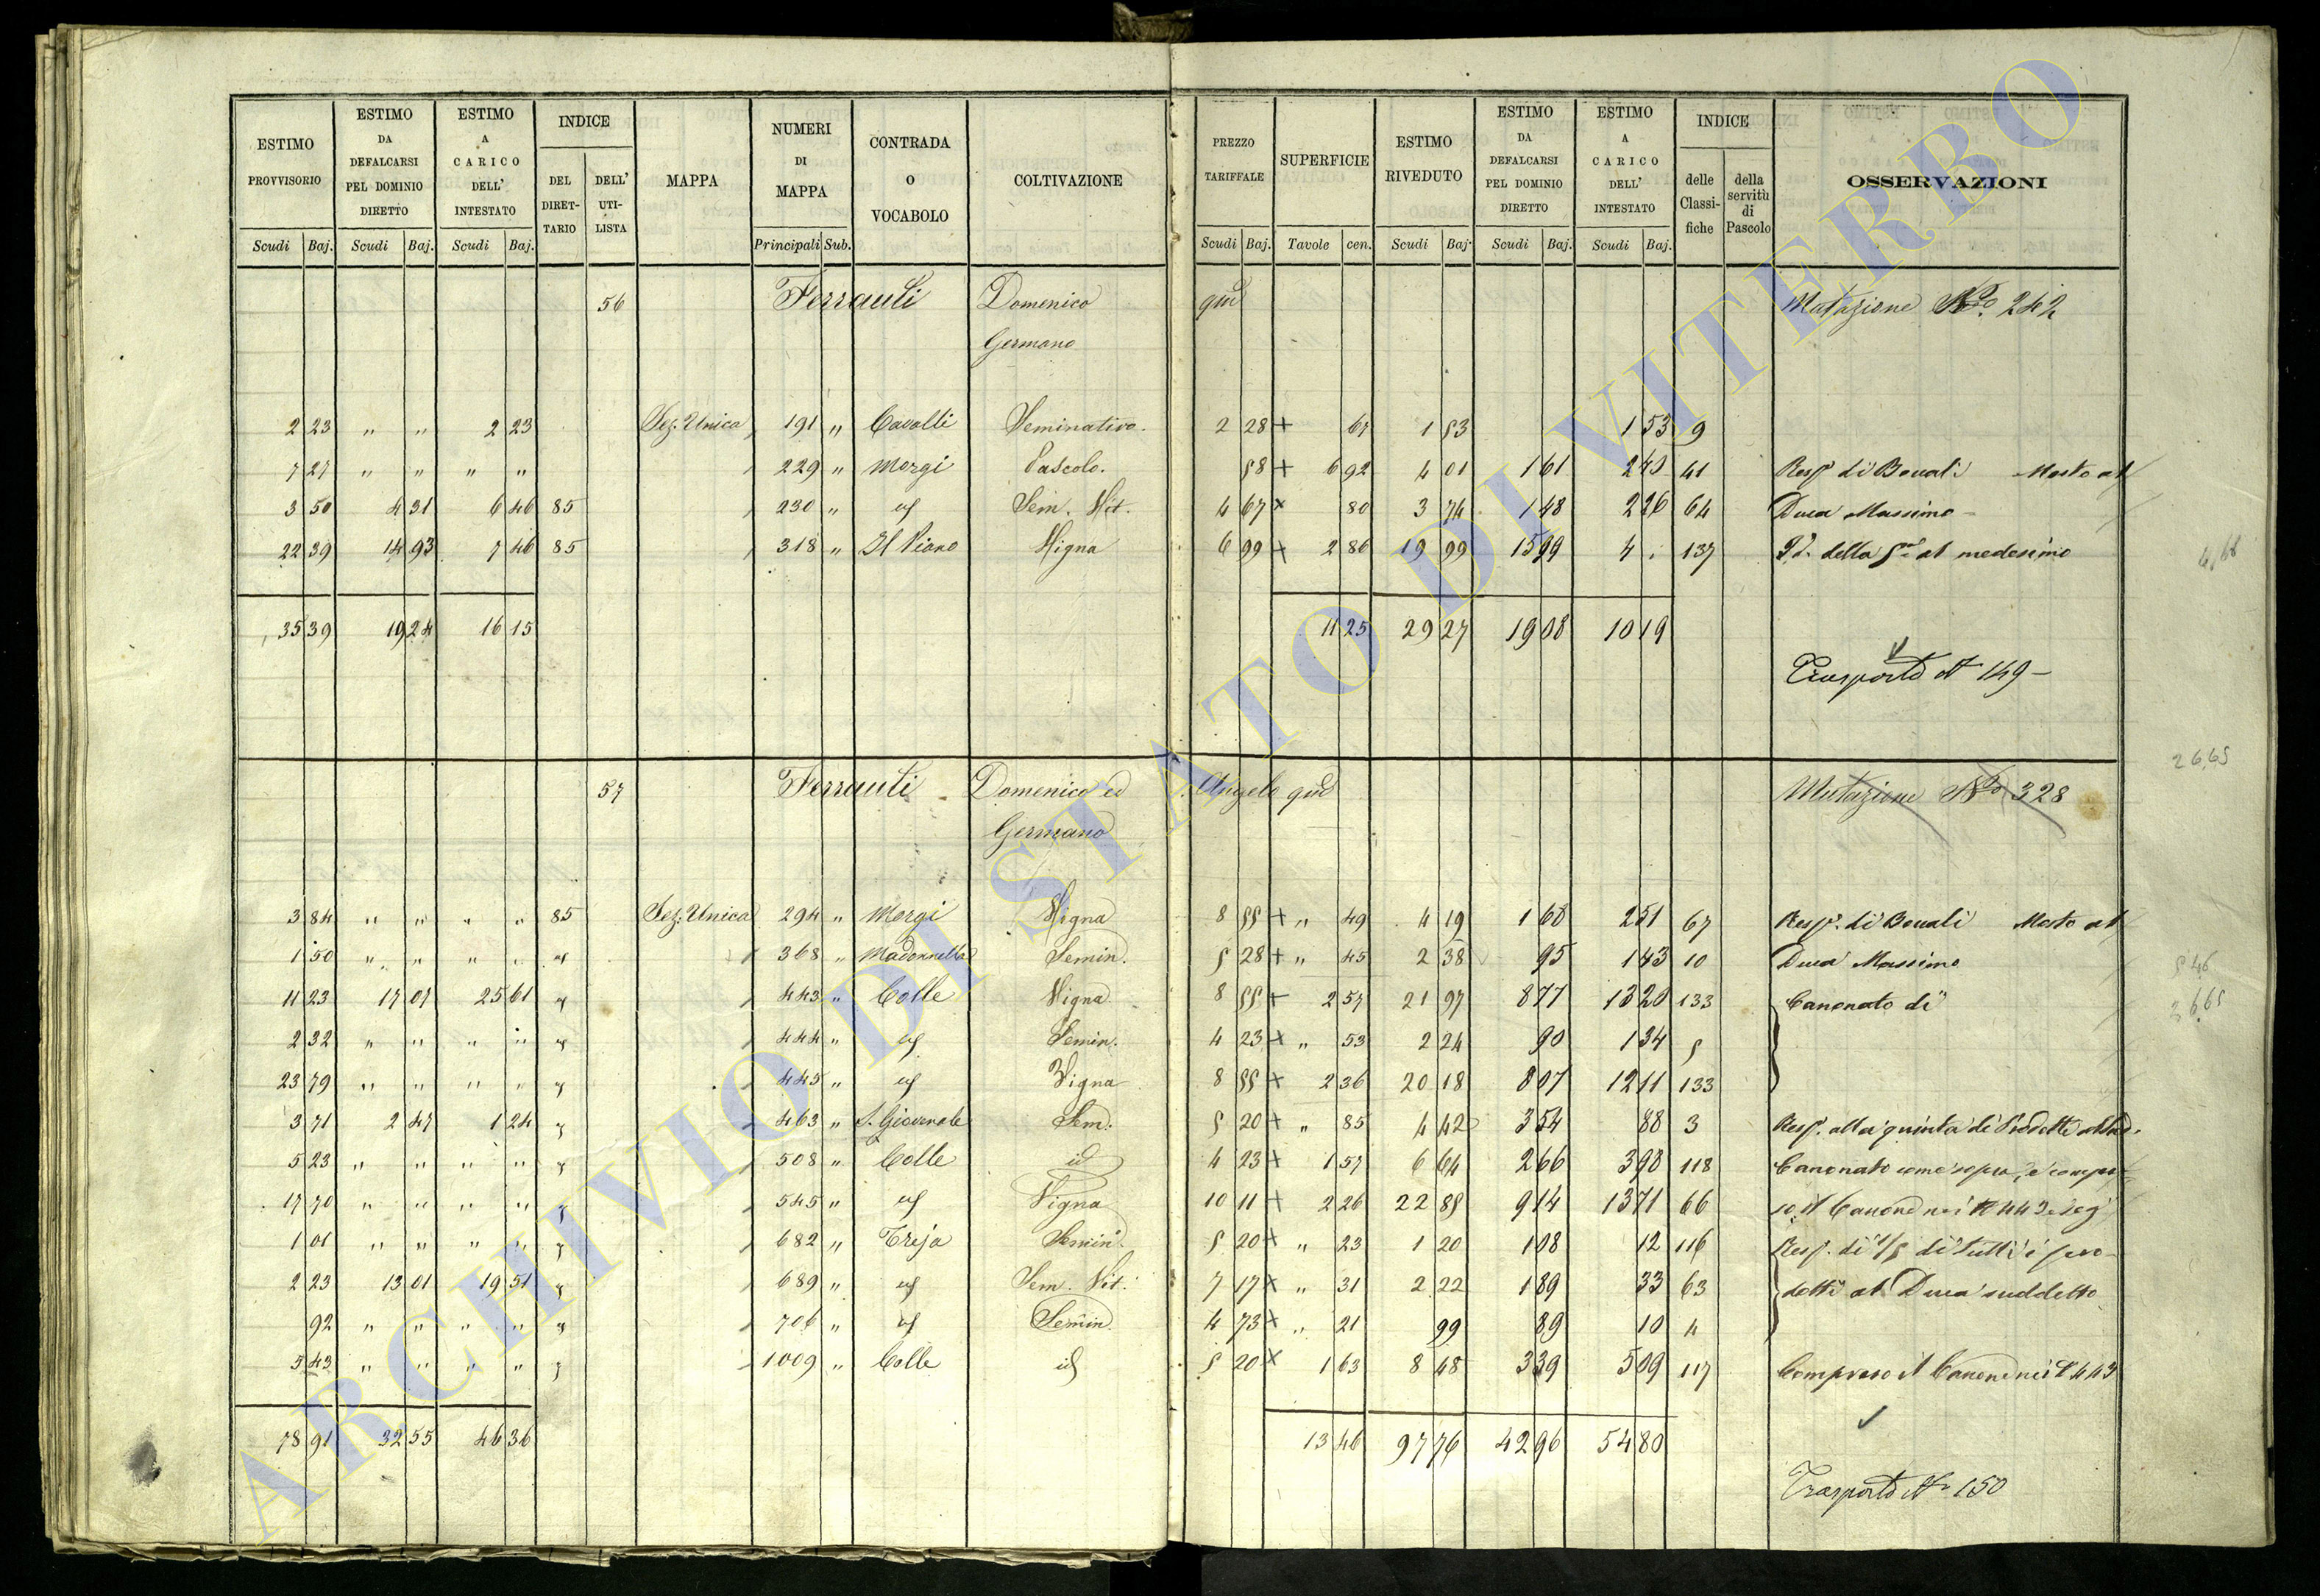 ESTIMO PROVVISORIO ESTIMO DA DEFALCARSI PEL DOMINIO DIRETTO ESTIMO A CARICO DELL' INTESTATO INDICE DEL DIRETTARIO DELL' UTILISTA MAPPA NUMERI DI MAPPA CONTRADA O VOCABOLO COLTIVAZIONE PREZZO TARIFFALE SUPERFICIE ESTIMO RIVEDUTO ESTIMO DA DEFALCARSI PEL DOMINIO DIRETTO ESTIMO A CARICO DELL' INTESTATO INDICE delle Classifiche della servitù di Pascolo OSSERVAZIONI
Scudi Baj. Scudi Baj. Scudi Baj. Principali Sub. Scudi Baj. Tavole cen. Scudi Baj. Scudi Baj. Scudi Baj.
56 Ferrauti Domenico qm Mutazione No. 242
Germano
2 23 " " 2 23 Sez. Unica 191 " Cavalli Seminativo. 2 28 + 67 1 53 1 53 9
7 27 " " " " 229 " Morgi Pascolo. 58 + 6 92 4 01 1 61 2 40 41 Resp. di Bouali Mosto al
3 50 4 31 6 46 85 230 " id Sem. Vit. 4 67 x 80 3 74 1 48 2 26 64 Duca Massimo
22 39 14 93 7 46 85 318 " Il Piano Vigna 6 99 + 2 86 19 99 15 99 4 . 137 Id. della 5a al medesimo
35 39 19 24 16 15 11 25 29 27 19 08 10 19
Trasporto al 149 -
57 Ferrauti Domenico ed Angelo qm Mutazione No 328
Germano
3 84 " " " " 85 Sez. Unica 294 " Morgi Vigna 8 55 + " 49 4 19 1 68 2 51 67 Resp. di Bouali Mosto al
1 50 " " " " id 368 " Madonnella Semin. 5 28 + " 45 2 38 95 1 43 10 Duca Massimo
11 23 17 07 25 61 id 443 " Colle Vigna 8 55 + 2 57 21 97 8 77 13 20 133 Canonato di
2 32 " " " " id 444 " id Semin. 4 23 x " 53 2 24 90 1 34 5
23 79 " " " " id 445 " id Vigna 8 55 x 2 36 20 18 8 07 12 11 133
3 71 2 47 1 24 id 463 " S. Giovenale Sem. 5 20 + " 85 4 42 3 54 88 3 Resp. alla quinta di Prodotti al
5 23 " " " " id 508 " Colle id 4 23 x 1 57 6 64 2 66 3 98 118 Canonato come sopra, e compre
17 70 " " " " id 545 " id Vigna 10 11 + 2 26 22 85 9 14 13 71 66 so il Canone nei N 443 e seg.
1 01 " " " " id 682 " Treja Semin. 5 20 x " 23 1 20 1 08 12 116 Resp. di 1/5 di tutti i pro-
2 23 13 01 19 51 id 689 " id Sem. Vit. 7 17 x " 31 2 22 1 89 33 63 dotti al Duca suddetto
92 " " " " id 706 " id Semin. 4 73 x " 21 99 89 10 4
5 43 " " " " id 1009 " Colle id 5 20 x 1 63 8 48 3 39 5 09 117 Compreso il Canone nei N 443
78 91 32 55 46 36 13 46 97 76 42 96 54 80
Trasporto N. 150
26,65
26,65
ARCHIVIO DI STATO DI VITERBO